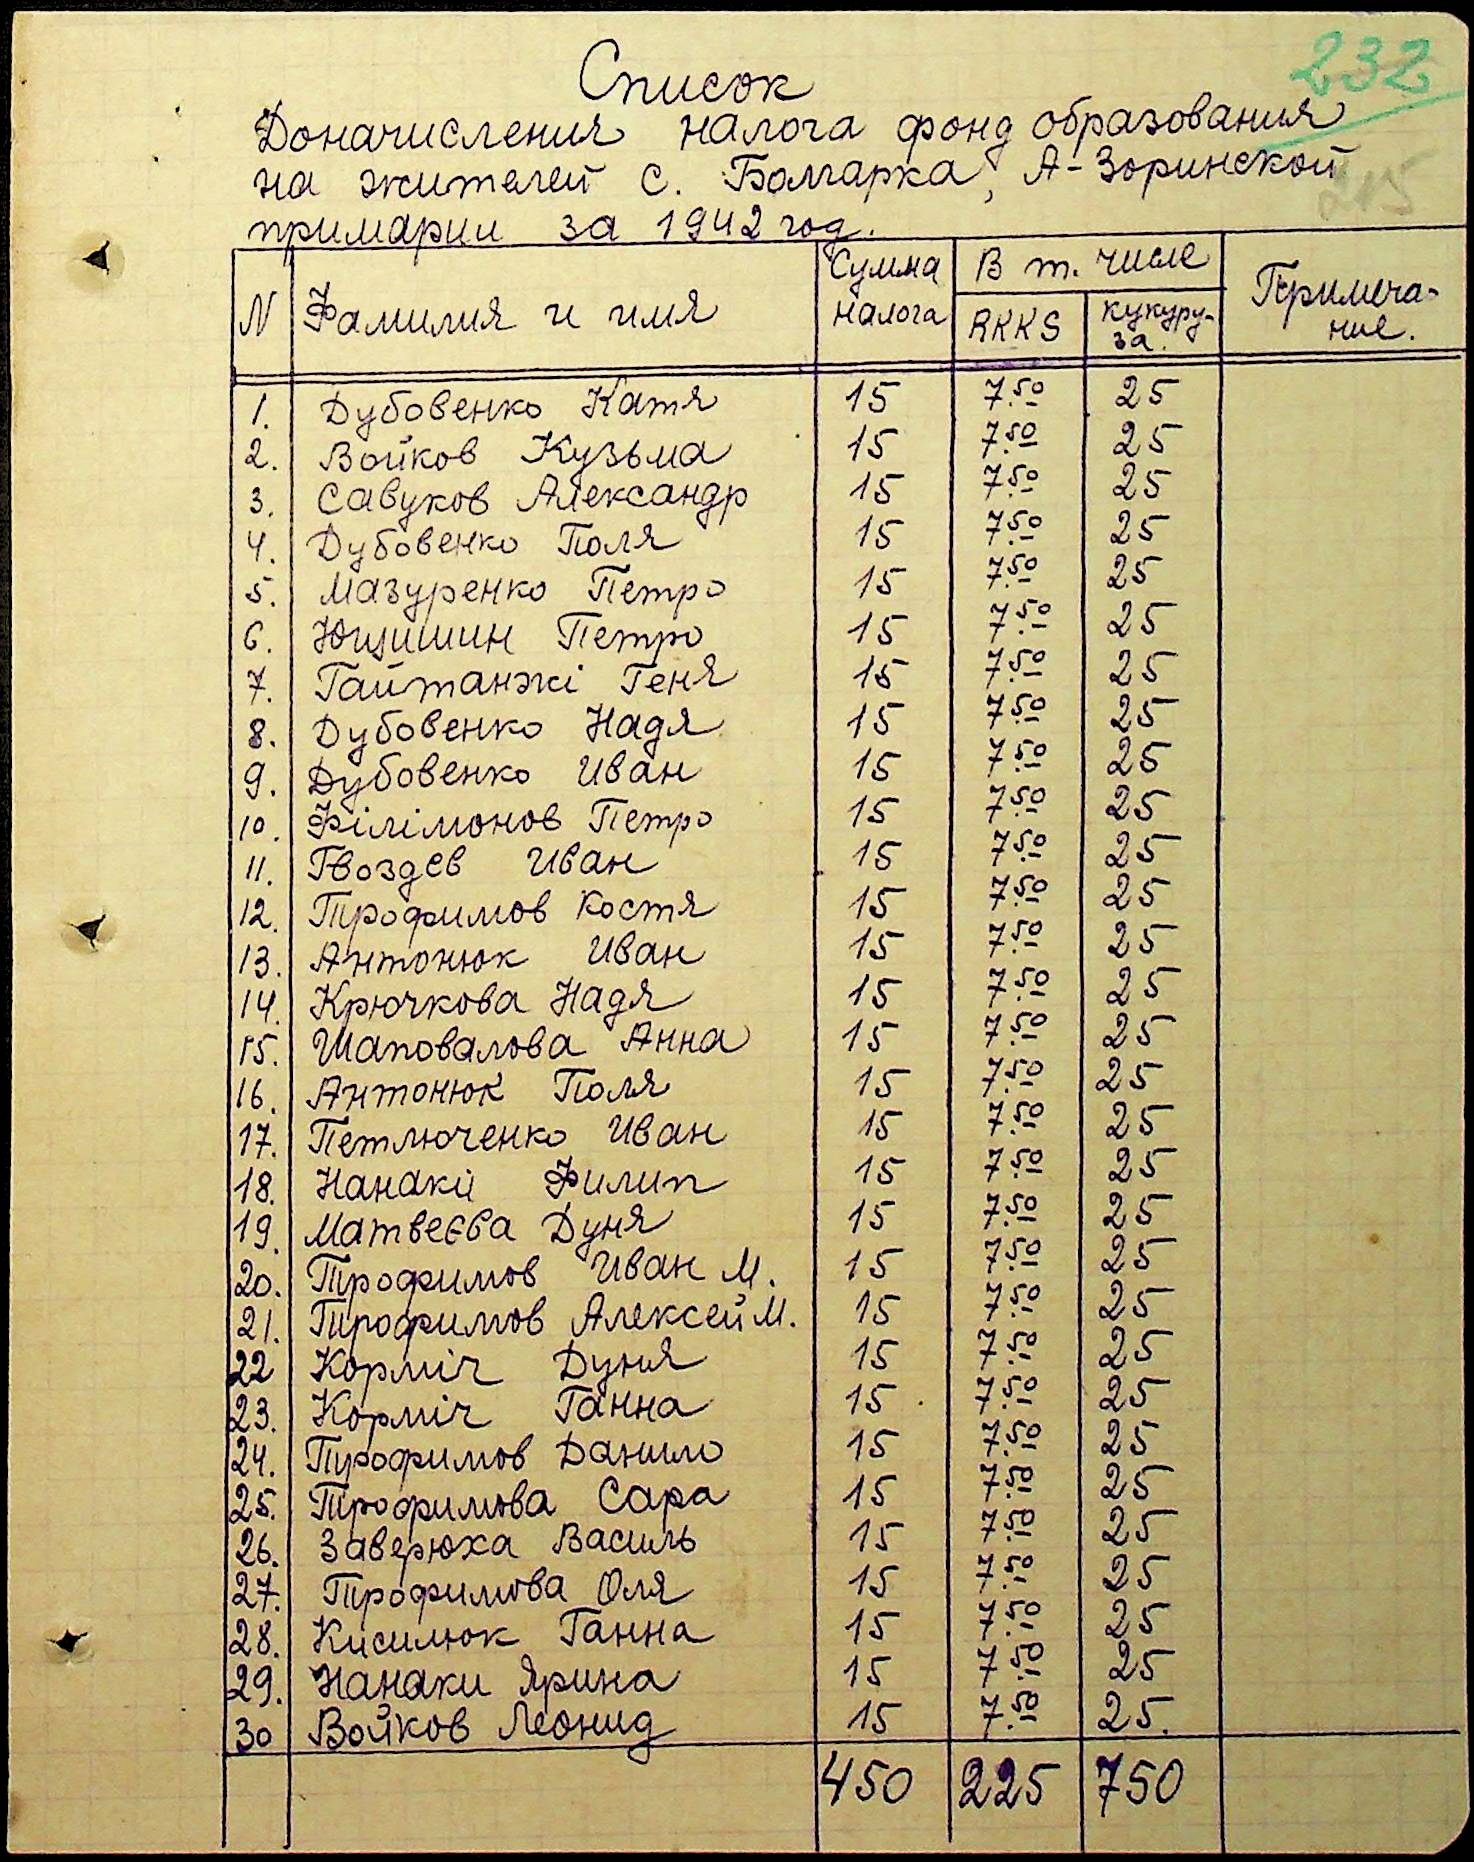 232
Список
Доначисления налога фонд образования
на жителей с. Болгарка, А-Зоринской
215
примарии за 1942 год.
N Фамилия и имя Сумма налога В т. числе RKKS кукуру-за. Примеча-ние.
1. Дубовенко Катя 15 7.50 25
2. Войков Кузьма 15 7.50 25
3. Савуков Александр 15 7.50 25
4. Дубовенко Поля 15 7.50 25
5. Мазуренко Петро 15 7.50 25
6. Ющишин Петро 15 7.50 25
7. Гайтанжі Геня 15 7.50 25
8. Дубовенко Надя 15 7.50 25
9. Дубовенко Иван 15 7.50 25
10. Філімонов Петро 15 7.50 25
11. Гвоздев Иван 15 7.50 25
12. Трофимов Костя 15 7.50 25
13. Антонюк Иван 15 7.50 25
14. Крючкова Надя 15 7.50 25
15. Шаповалова Анна 15 7.50 25
16. Антонюк Поля 15 7.50 25
17. Петлюченко Иван 15 7.50 25
18. Нанакі Филип 15 7.50 25
19. Матвеєва Дуня 15 7.50 25
20. Трофимов Иван М. 15 7.50 25
21. Трофимов Алексей М. 15 7.50 25
22 Корміч Дуня 15 7.50 25
23. Корміч Ганна 15 7.50 25
24. Трофимов Данило 15 7.50 25
25. Трофимова Сара 15 7.50 25
26. Заверюха Василь 15 7.50 25
27. Трофимова Оля 15 7.50 25
28. Кисилюк Ганна 15 7.50 25
29. Нанаки Ярина 15 7.50 25
30 Войков Леонид 15 7.50 25.
450 225 750